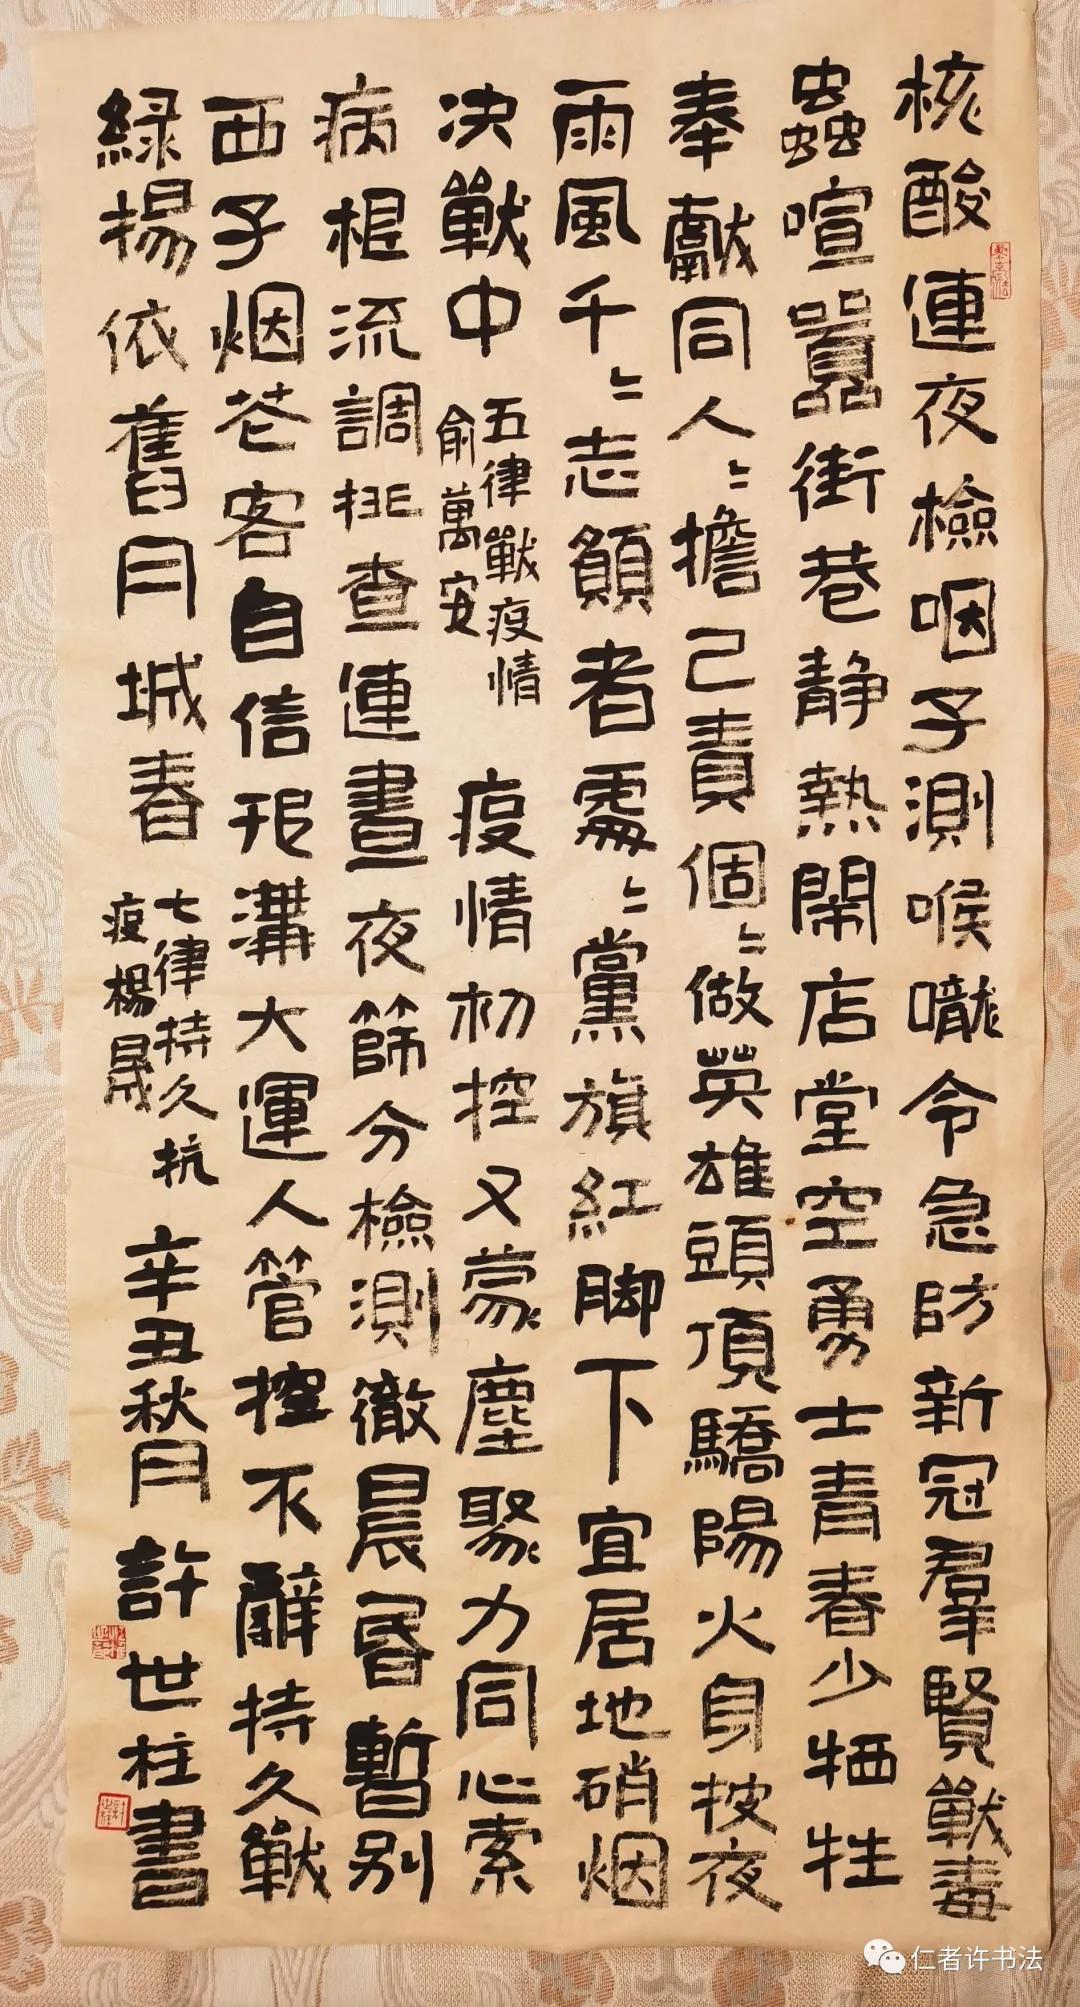 核酸連夜檢咽子測喉嚨令急防新冠羣賢戰毒
蟲喧囂街巷静熱鬧店堂空勇士青春少牺牲
奉獻同人〻擔己責個〻做英雄頭頂驕陽火身披夜
雨風千〻志願者處〻黨旗紅脚下宜居地硝烟
决戰中
五律戰疫情
俞萬安
疫情初控又蒙塵聚力同心索
病根流調排查連晝夜篩分檢測徹晨昏暫别
西子烟花客自信邗溝大運人管控不辭持久戰
緑揚依舊月城春
七律持久抗
疫楊晟
辛丑秋月許世柱書
仁者许书法